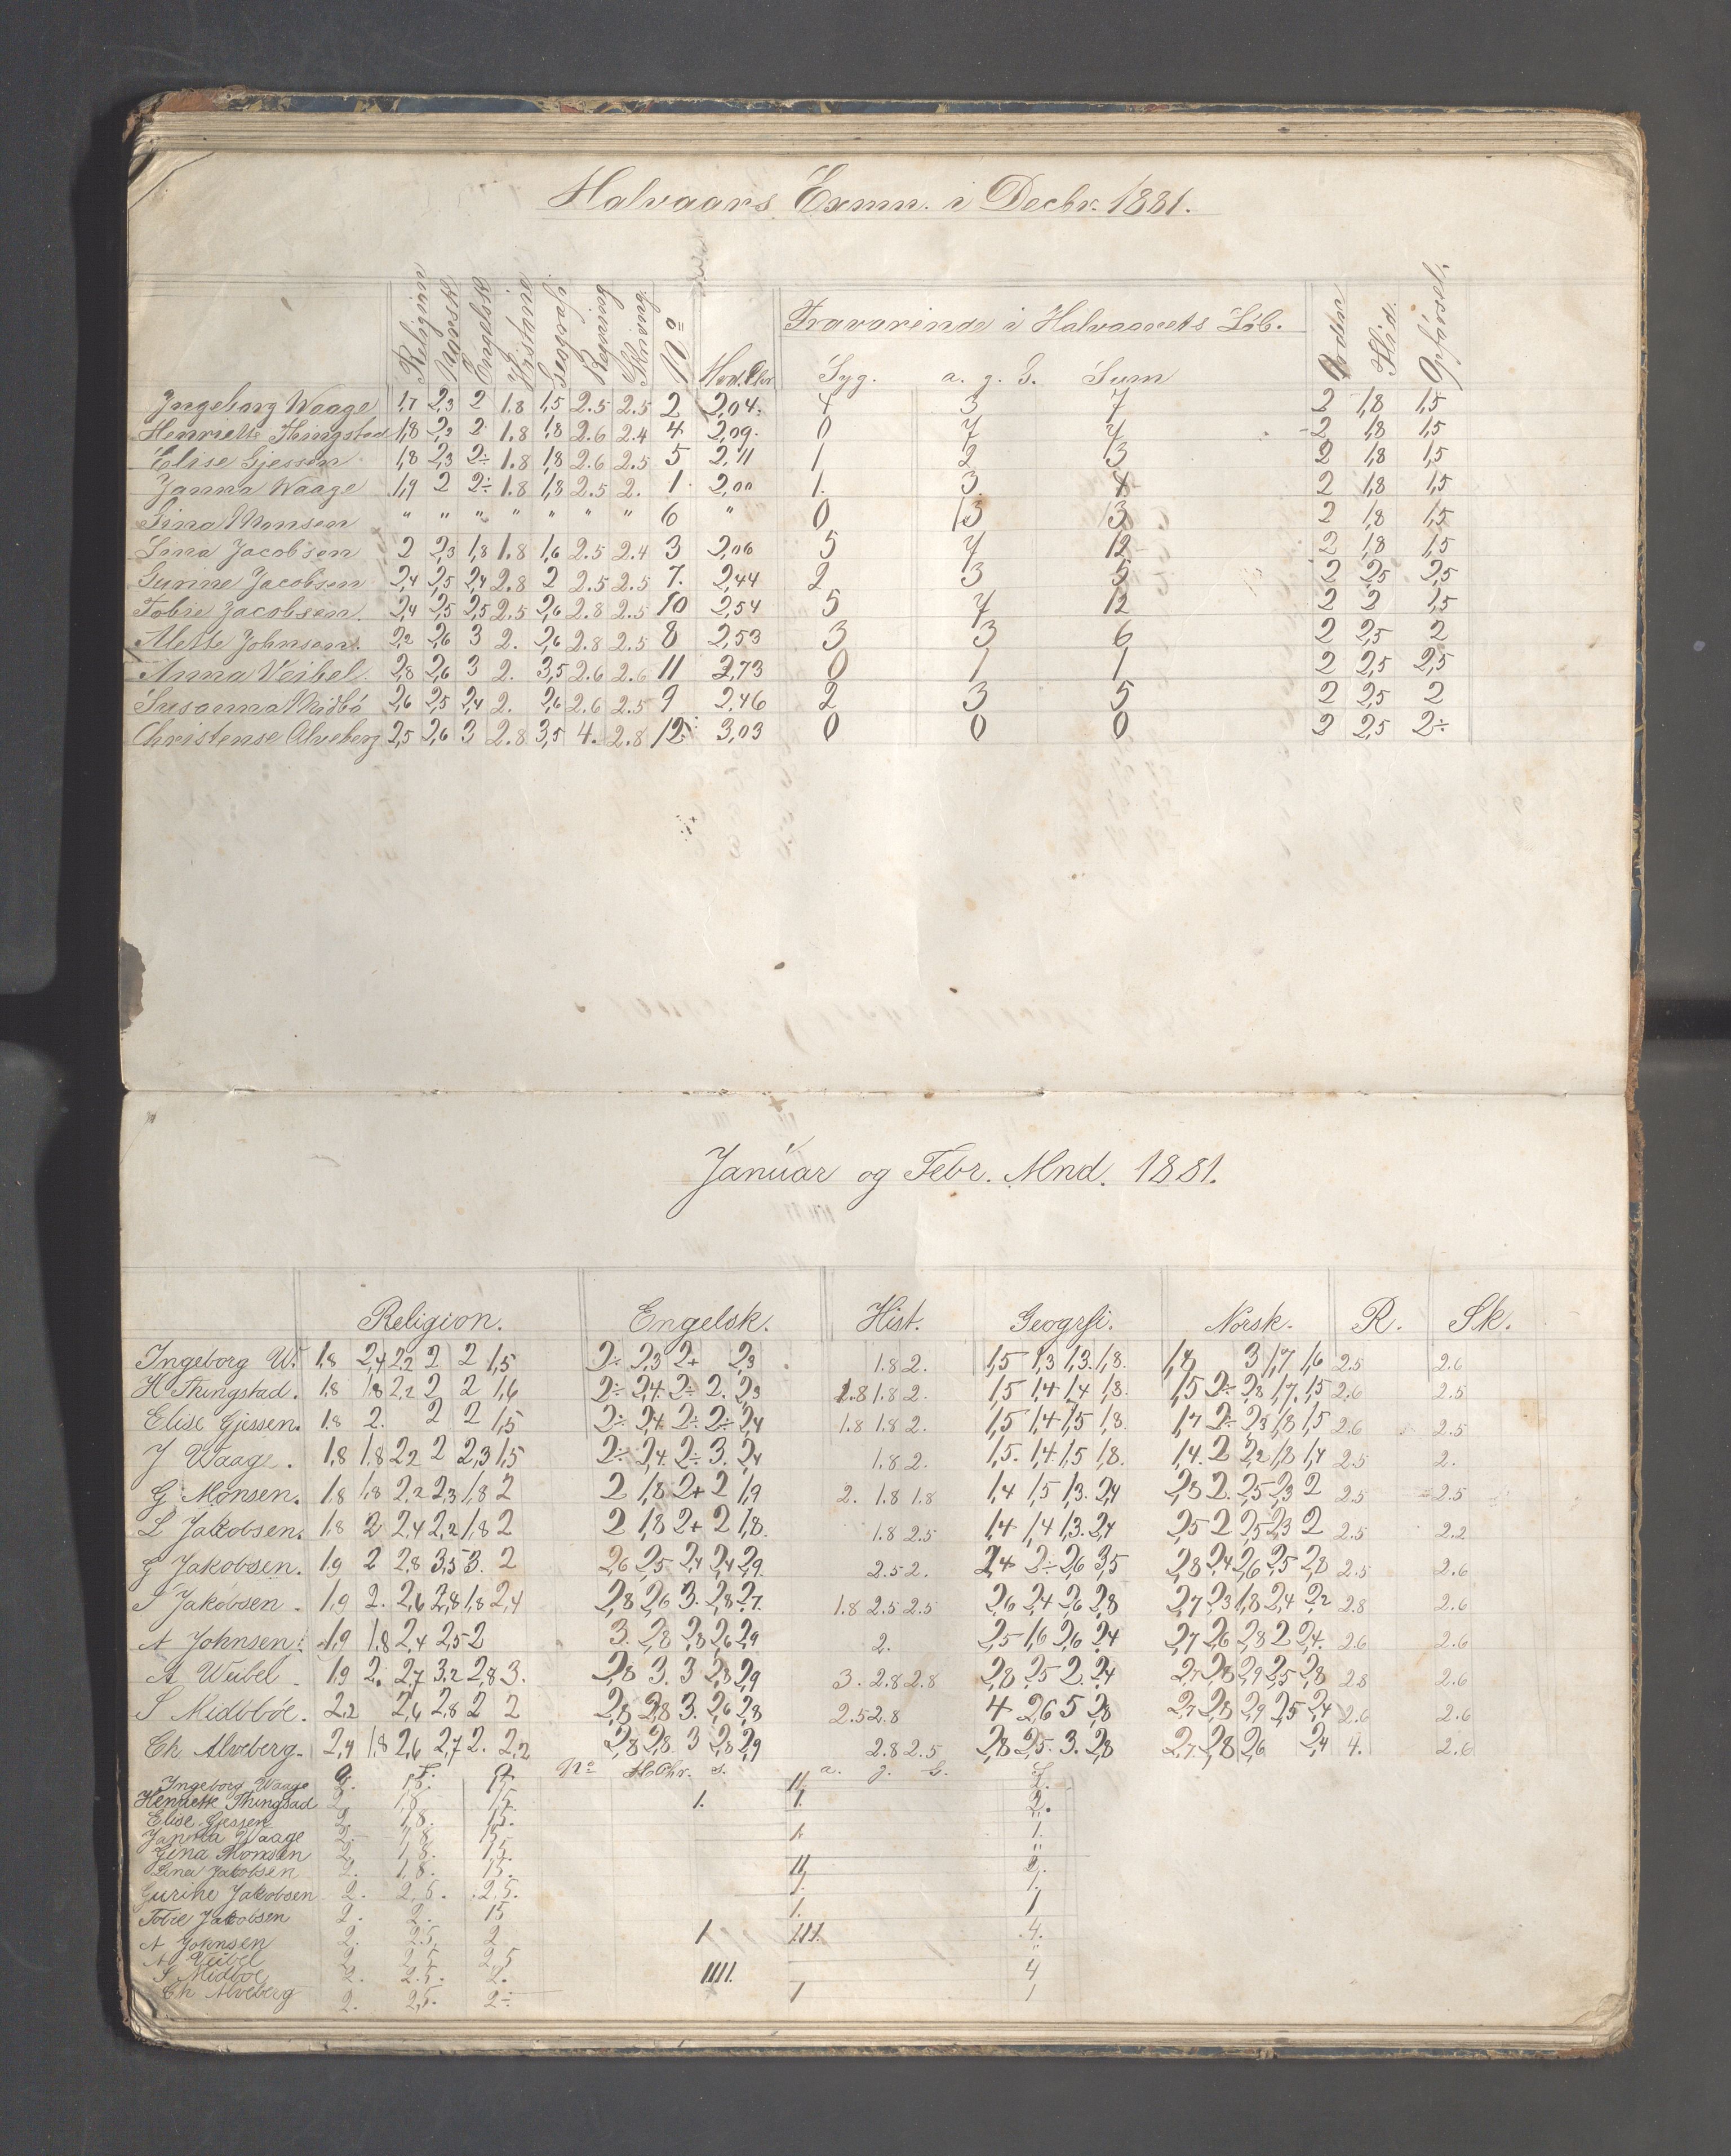 Halvaars Exmn. i Decbr. 1881.
Religion Norsk Engelsk Historie Geografi Regning Skrivning No Hvd.Char Fraværende i Halvaarets Löb. Orden Flid. Opførsel.
Syg. a. g. G. Sum
Ingeborg Waage 1,7 2,3 2 1.8 1,5 2.5 2.5 2 2,04. 4 3 7 2 1,8 1,5
Henriette Thingstad 1,8 2,2 2 1.8 1,8 2.6 2.4 4 2,09. 0 7 7 2 1,8 1,5
Elise Gjessen 1,8 2,3 2÷ 1.8 1,8 2.6 2.5 5 2,11 1 2 3 2 1,8 1,5
Janna Waage 1,9 2 2÷ 1.8 1,8 2.5 2. 1. 2,00 1. 3. 4 2 1,8 1,5
Gina Monsen " " " " " " " 6 " 0 13 13 2 1,8 1,5
Lina Jacobsen 2 2,3 1,8 1.8 1,6 2.5 2.4 3 2,06 5 7 12 2 1,8 1,5
Gurine Jacobsen 2,4 2,5 2,4 2.8 2 2.5 2.5 7. 2,44 2 3 5 2 2,5 2,5
Tobie Jacobsen. 2,4 2,5 2,5 2.5 2,6 2.8 2.5 10 2,54 5 7 12 2 2 1,5
Alette Johnsen. 2,2 2,6 3 2. 2,6 2.8 2.5 8 2,53 3 3 6 2 2,5 2
Anna Veibel. 2,8 2,6 3 2. 3,5 2.6 2.6 11 2,73 0 1 1 2 2,5 2,5
Susanna Midbö 2,6 2,5 2,4 2. 2,6 2.6 2.5 9 2,46 2 3 5 2 2,5 2
Christense Alveberg 2,5 2,6 3 2.8 3,5 4. 2.8 12. 3,03 0 0 0 2 2,5 2÷
Januar og Febr. Mnd. 1881.
Religion. Engelsk. Hist. Geogrfi. Norsk. R. Sk.
Ingeborg W. 1,8 2,4 2,2 2 2 1,5 2÷ 2,3 2+ 2,3 1.8 2. 1,5 1,3 1,3. 1,8. 1,7 3 1,7 1,6 2.5 2.6
H Thingstad. 1,8 1,8 2,2 2 2 1,6 2÷ 2,4. 2÷ 2. 2,3 1.8 1.8 2. 1,5 1,4 1,4 1,8. 1,5 2÷ 2,3 1,7. 1,5 2.6 2.5
Elise Gjessen. 1.8 2. 2 2 1,5 2÷ 2,4 2÷ 2÷ 2,4 1.8 1.8 2. 1,5 1,4 1,5 1,8. 1,7 2÷ 2,3 1,8 1,5 2.6 2.5
J Waage. 1,8 1.8 2,2 2 2,3 1,5 2÷ 2,4. 2÷ 3. 2,4 1.8 2. 1,5. 1,4 1,5 1,8. 1,4. 2 2,2 1,8 1,4 2.5 2.
G Monsen. 1,8 1,8 2,2 2,3 1,8 2 2 1,8 2+ 2 1,9 2. 1.8 1.8 1,4 1,5 1,3. 2,4 2,3 2. 2,5 2,3 2 2.5 2.5
L Jakobsen. 1.8 2 2,4 2,2 1,8 2 2 1,8 2+ 2 1,8. 1.8 2.5 1,4 1,4 1,3. 2,4 2,5 2 2,5 2,3 2 2.5 2.2
G Jakobsen. 1.9 2 2,8 3,5 3. 2 2,6 2,5 2,4 2,4 2,9. 2.5 2. 2,4 2÷ 2,6 3,5 2,8 2,4 2,6 2,5 2,8 2.5 2.6
T Jakobsen. 1,9 2. 2,6 2,8 1,8 2,4 2,8 2,6 3. 2,8 2,7. 1.8 2.5 2.5 2,6 2,4 2,6 2,8 2,7 2,3 1,8 2,4 2,2 2.8 2.6
A Johnsen. 1,9 1,8 2,4 2,5 2 3. 2,8 2,8 2,6 2,9 2. 2,5 1,6 2,6 2,4 2,7 2,6 2,8 2 2,4. 2.6 2.6
A Weibel. 1,9 2. 2,7 3,2 2,8 3. 2,8 3. 3 2,8 2,9 3. 2.8 2.8 2,8 2,5 2. 2,4 2,7 2,8 2,9 2,5 2,8 2.8 2.6
S Midbböe. 2,2 2,6 2,8 2 2 2,8 2,8 3. 2,6 2,8 2.5 2.8 4 2,6 5 2,8 2,7 2,8 2,9 2,5 2,4 2.6 2.6
Ch Alveberg. 2,4 1,8 2,6 2,7 2. 2,2 2,8 2,8. 3 2,8 2,9 2.8 2.5 2,8 2,5. 3. 2,8 2,7. 2,8 2,6 2,4 4. 2.6
O. F. O. No H.Chr. s. a. g. G. S.
Ingeborg Waage 2. 1,8. 1,5. 11. 2.
Henriette Thingsad 2. 1,8 1,5. 1. 1. 2.
Elise Gjessen 2. 1,8. 1,5. "
Janna Waage 2. 1,8. 1,5. 1. 1.
Gina Monsen 2. 1,8. 1,5. "
Lina Jakobsen 2. 1,8. 1,5. 11. 2.
Gurine Jakobsen 2. 2,5. 2.5. 1. 1.
Tobie Jakobsen 2. 2. 1,5 1. 1
A Johnsen 2. 2,5. 2 1 111. 4.
A Veibel 2 2,5 2,5 "
S Midböe 2. 2.5. 2. 1111. 4
Ch Alveberg 2. 2,5. 2÷ 1 1